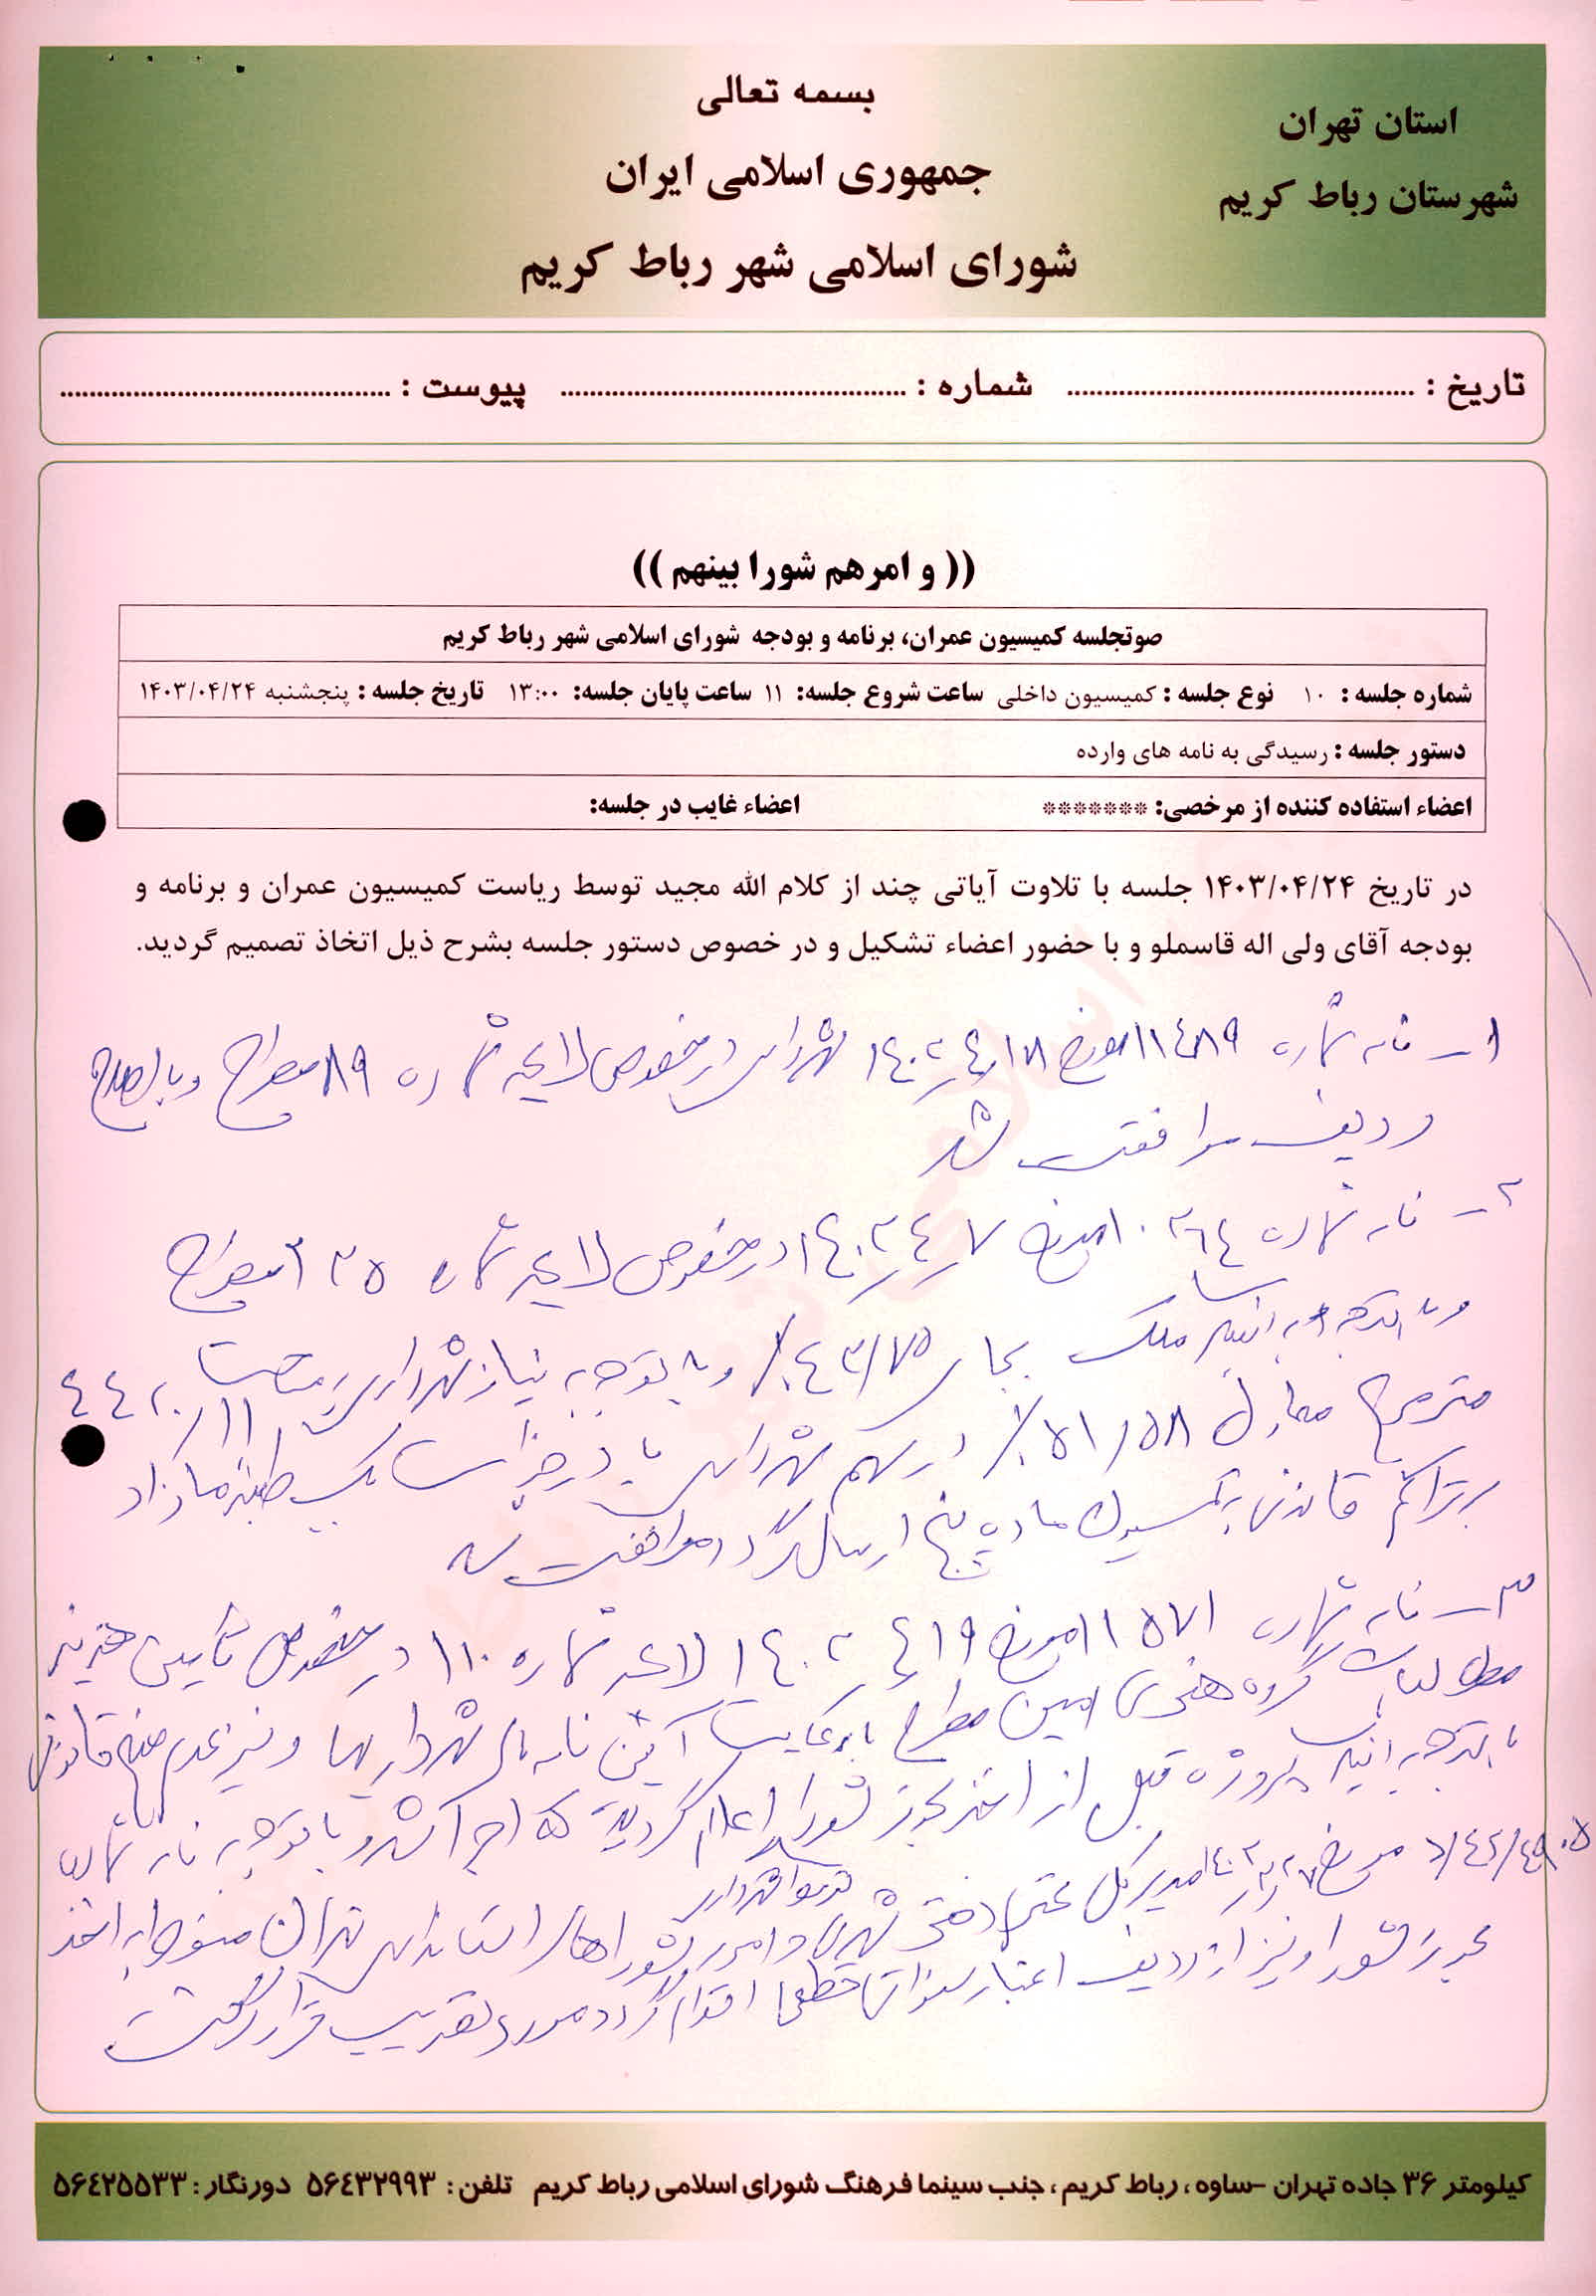 بسمه تعالی
استان تهران
جمهوری اسلامی ایران
شهرستان رباط کریم
شورای اسلامی شهر رباط کریم
تاریخ : ........................ شماره : ........................ پیوست : ........................
(( و امرهم شورا بینهم ))
صوتجلسه کمیسیون عمران، برنامه و بودجه شورای اسلامی شهر رباط کریم
شماره جلسه : ۱۰ نوع جلسه : کمیسیون داخلی ساعت شروع جلسه: ۱۱ ساعت پایان جلسه: ۱۳:۰۰ تاریخ جلسه : پنجشنبه ۱۴۰۳/۰۴/۲۴
دستور جلسه : رسیدگی به نامه های وارده
اعضاء استفاده کننده از مرخصی: ******* اعضاء غایب در جلسه:
در تاریخ ۱۴۰۳/۰۴/۲۴ جلسه با تلاوت آیاتی چند از کلام الله مجید توسط ریاست کمیسیون عمران و برنامه و
بودجه آقای ولی اله قاسملو و با حضور اعضاء تشکیل و در خصوص دستور جلسه بشرح ذیل اتخاذ تصمیم گردید.
۱- نامه شماره ۱۱۴۸۹ مورخ ۱۴۰۳/۴/۱۸ شهرداری در خصوص لایحه شماره ۸۹ مطرح و با اصلاح
ردیف موافقت شد
۲- نامه شماره مورخ ۱۴۰۳/۴/۷ در خصوص لایحه شماره مطرح
و با توجه به اینکه ملک بجای ۴۳/۷۵٪ و با توجه به نیاز شهرداری
متر مربع معادل ۵۱/۵۸٪ در سهم شهرداری با درخواست یک طبقه مازاد
بر تراکم قانونی به کمیسیون ماده پنج ارسال گردد موافقت شد
۳- نامه شماره ۱۱۵۷۱ مورخ ۱۴۰۳/۴/۱۹ لایحه شماره ۱۱۰ در خصوص تامین هزینه
مطالبات گروه هنری امین مطرح با رعایت آئین نامه مالی شهرداریها و نیز عدم منع قانونی
با توجه به اینکه پروژه قبل از اخذ مجوز شورا اعلام گردیده که اجرا شد و با توجه به نامه شماره
مورخ مدیر کل دفتر شهری و امور شوراهای استانداری تهران منوط به اخذ
توسط شهرداری
مجوز شورا و نیز از ردیف اعتبار اقدام گردد مورد تصویب قرار گرفت
کیلومتر ۳۶ جاده تهران -ساوه ، رباط کریم ، جنب سینما فرهنگ شورای اسلامی رباط کریم تلفن : ۵۶۴۳۲۹۹۳ دورنگار : ۵۶۴۲۵۵۳۳